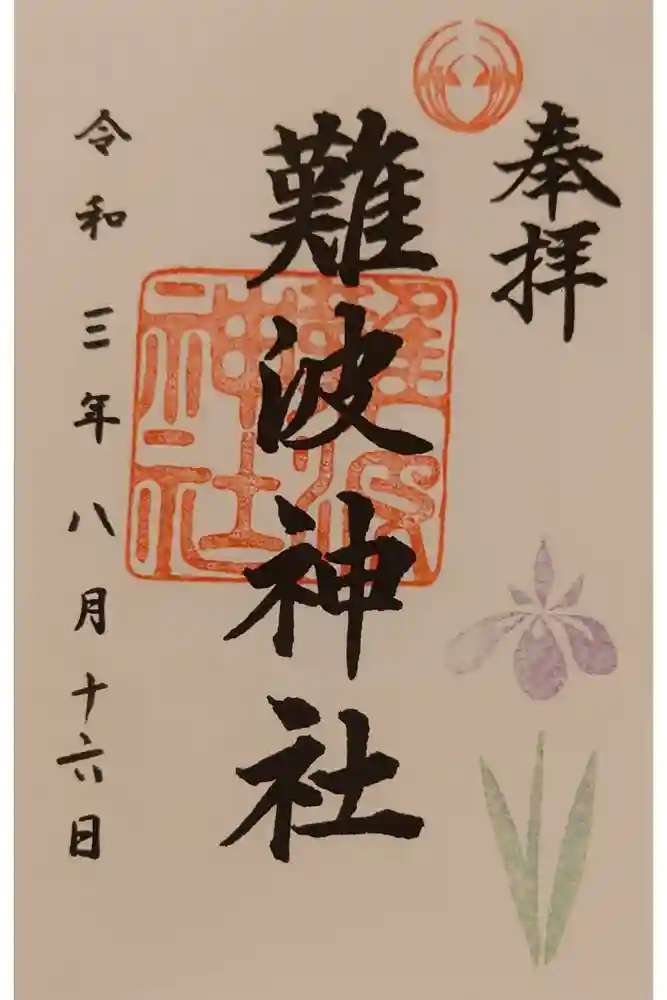 奉拝
難波神社
難波神社
令和三年八月十六日